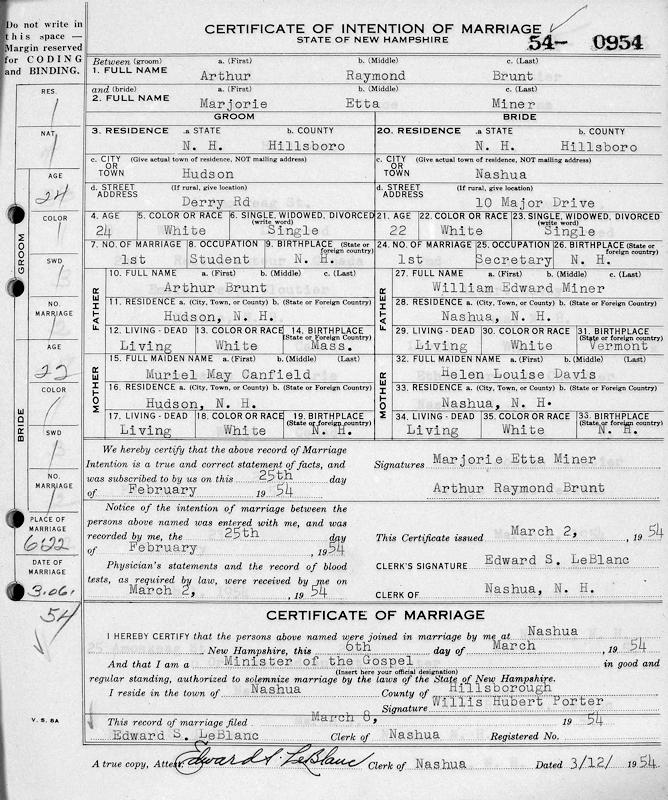 Do not write in
this space —
Margin reserved
for CODING
and BINDING.
CERTIFICATE OF INTENTION OF MARRIAGE
STATE OF NEW HAMPSHIRE
54- 0954
Between (groom) a. (First) b. (Middle) c. (Last)
1. FULL NAME Arthur Raymond Brunt
and (bride) a. (First) b. (Middle) c. (Last)
2. FULL NAME Marjorie Etta Miner
GROOM BRIDE
3. RESIDENCE .a STATE b. COUNTY 20. RESIDENCE .a STATE b. COUNTY
N. H. Hillsboro N. H. Hillsboro
c. CITY OR TOWN (Give actual town of residence, NOT mailing address) c. CITY OR TOWN (Give actual town of residence, NOT mailing address)
Hudson Nashua
d. STREET ADDRESS (If rural, give location) d. STREET ADDRESS (If rural, give location)
Derry Rd 10 Major Drive
4. AGE 5. COLOR OR RACE 6. SINGLE, WIDOWED, DIVORCED (write word) 21. AGE 22. COLOR OR RACE 23. SINGLE, WIDOWED, DIVORCED (write word)
24 White Single 22 White Single
7. NO. OF MARRIAGE 8. OCCUPATION 9. BIRTHPLACE (State or foreign country) 24. NO. OF MARRIAGE 25. OCCUPATION 26. BIRTHPLACE (State or foreign country)
1st Student N. H. 1st Secretary N. H.
FATHER 10. FULL NAME a. (First) b. (Middle) (Last) FATHER 27. FULL NAME a. (First) b. (Middle) (Last)
Arthur Brunt William Edward Miner
11. RESIDENCE a. (City, Town, or County) b. (State or Foreign Country) 28. RESIDENCE a. (City, Town, or County) b. (State or Foreign Country)
Hudson, N. H. Nashua, N. H
12. LIVING - DEAD 13. COLOR OR RACE 14. BIRTHPLACE (State or Foreign Country) 29. LIVING - DEAD 30. COLOR OR RACE 31. BIRTHPLACE (State or Foreign Country)
Living White Mass. Living White Vermont
MOTHER 15. FULL MAIDEN NAME a. (First) b. (Middle) (Last) MOTHER 32. FULL MAIDEN NAME a. (First) b. (Middle) (Last)
Muriel May Canfield Helen Louise Davis
16. RESIDENCE a. (City, Town, or County) b. (State or Foreign Country) 33. RESIDENCE a. (City, Town, or County) b. (State or Foreign Country)
Hudson, N. H. Nashua, N. H.
17. LIVING - DEAD 18. COLOR OR RACE 19. BIRTHPLACE (State or foreign country) 34. LIVING - DEAD 35. COLOR OR RACE 35. BIRTHPLACE (State or foreign country)
Living White N. H. Living White N. H.
We hereby certify that the above record of Marriage
Intention is a true and correct statement of facts, and
was subscribed to by us on this 25th day
of February 19 54
Signatures Marjorie Etta Miner
Arthur Raymond Brunt
Notice of the intention of marriage between the
persons above named was entered with me, and was
recorded by me, the 25th day
of February , 19 54
Physician's statements and the record of blood
tests, as required by law, were received by me on
March 2, , 19 54
This Certificate issued March 2, , 19 54
CLERK'S SIGNATURE Edward S. LeBlanc
CLERK OF Nashua, N. H.
CERTIFICATE OF MARRIAGE
I HEREBY CERTIFY that the persons above named were joined in marriage by me at Nashua
New Hampshire, this 6th day of March , 19 54
And that I am a Minister of the Gospel in good and
(Insert here your official designation)
regular standing, authorized to solemnize marriage by the laws of the State of New Hampshire.
I reside in the town of Nashua County of Hillsborough
Signature Willis Hubert Porter
This record of marriage filed March 8, 19 54
Edward S. LeBlanc Clerk of Nashua Registered No.
A true copy, Attest: Edward S. LeBlanc Clerk of Nashua Dated 3/12/ 1954.
RES.
1
NAT.
1
AGE
24
COLOR
1
SWD
NO.
MARRIAGE
AGE
22
COLOR
1
SWD
NO.
MARRIAGE
GROOM
BRIDE
PLACE OF
MARRIAGE
622
DATE OF
MARRIAGE
3.06.
54
V. S. 8A